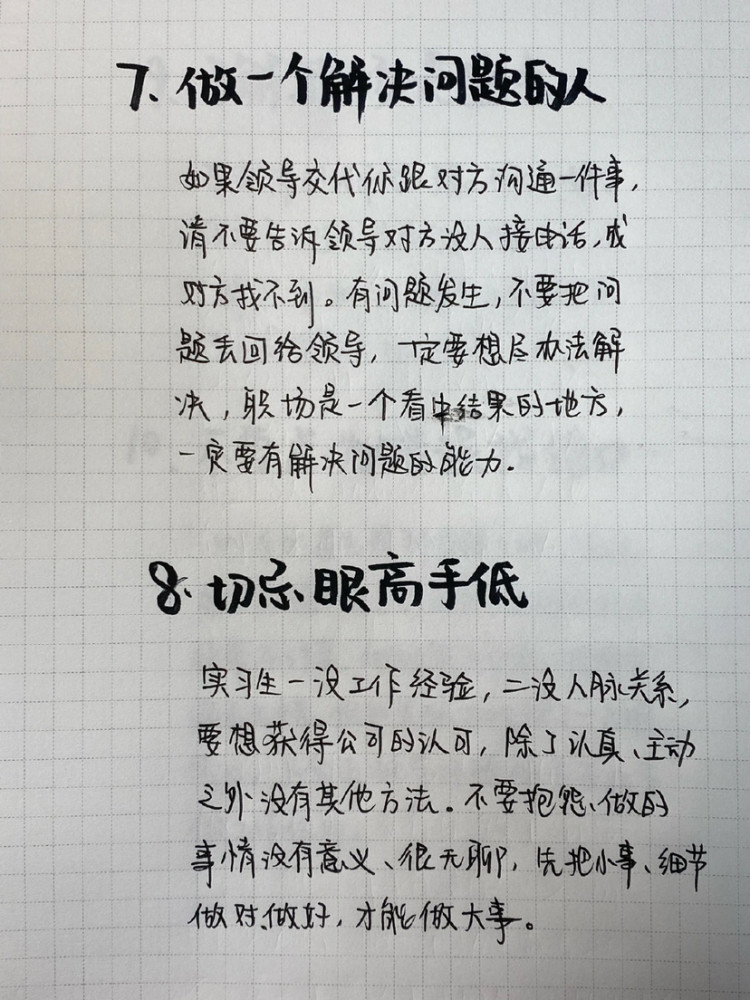 7、做一个解决问题的人
如果领导交代你跟对方沟通一件事,
请不要告诉领导对方没人接电话,或
对方找不到。有问题发生,不要把问
题丢回给领导,一定要想尽办法解
决,职场是一个看中结果的地方,
一定要有解决问题的能力.
8、切忌眼高手低
实习生一没工作经验,二没人脉关系,
要想获得公司的认可,除了认真、主动
之外没有其他方法。不要抱怨、做的
事情没有意义、很无聊,先把小事、细节
做对、做好,才能做大事。